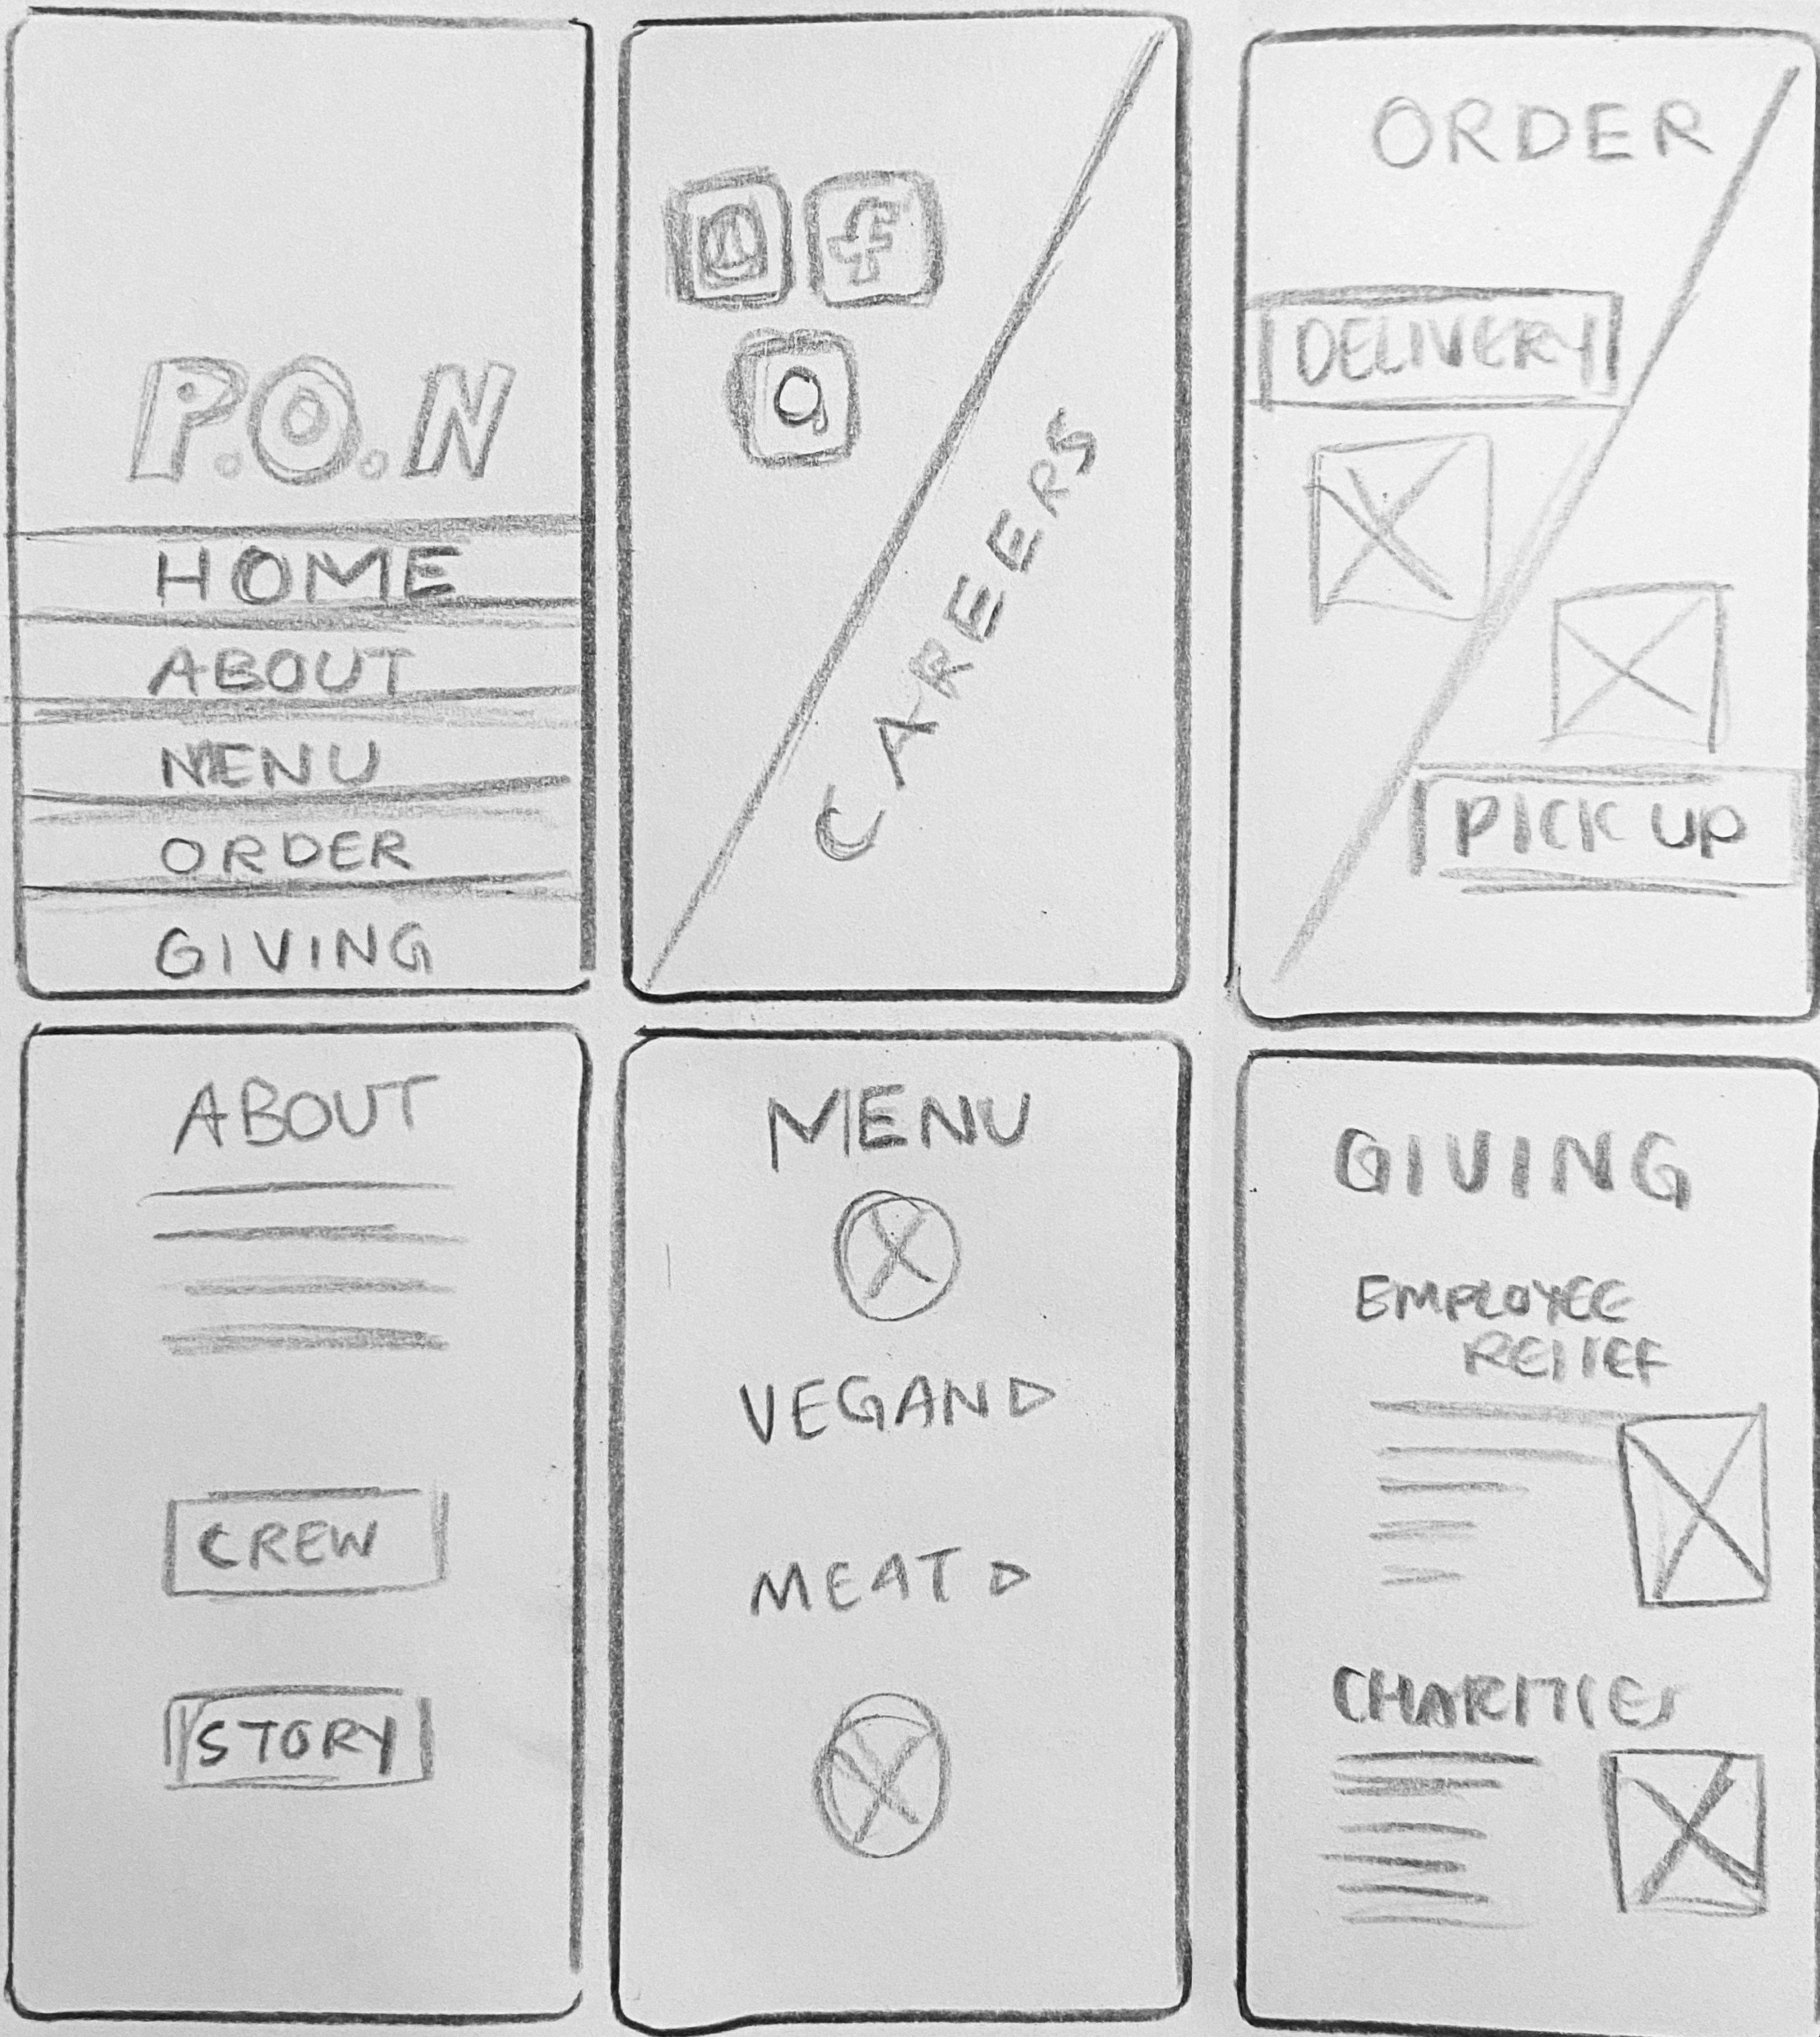 P.O.N
HOME
ABOUT
MENU
ORDER
GIVING
f
CAREERS
ORDER
DELIVERY
PICK UP
ABOUT
CREW
STORY
MENU
VEGAN
MEAT
GIVING
EMPLOYEE
RELIEF
CHARITIES